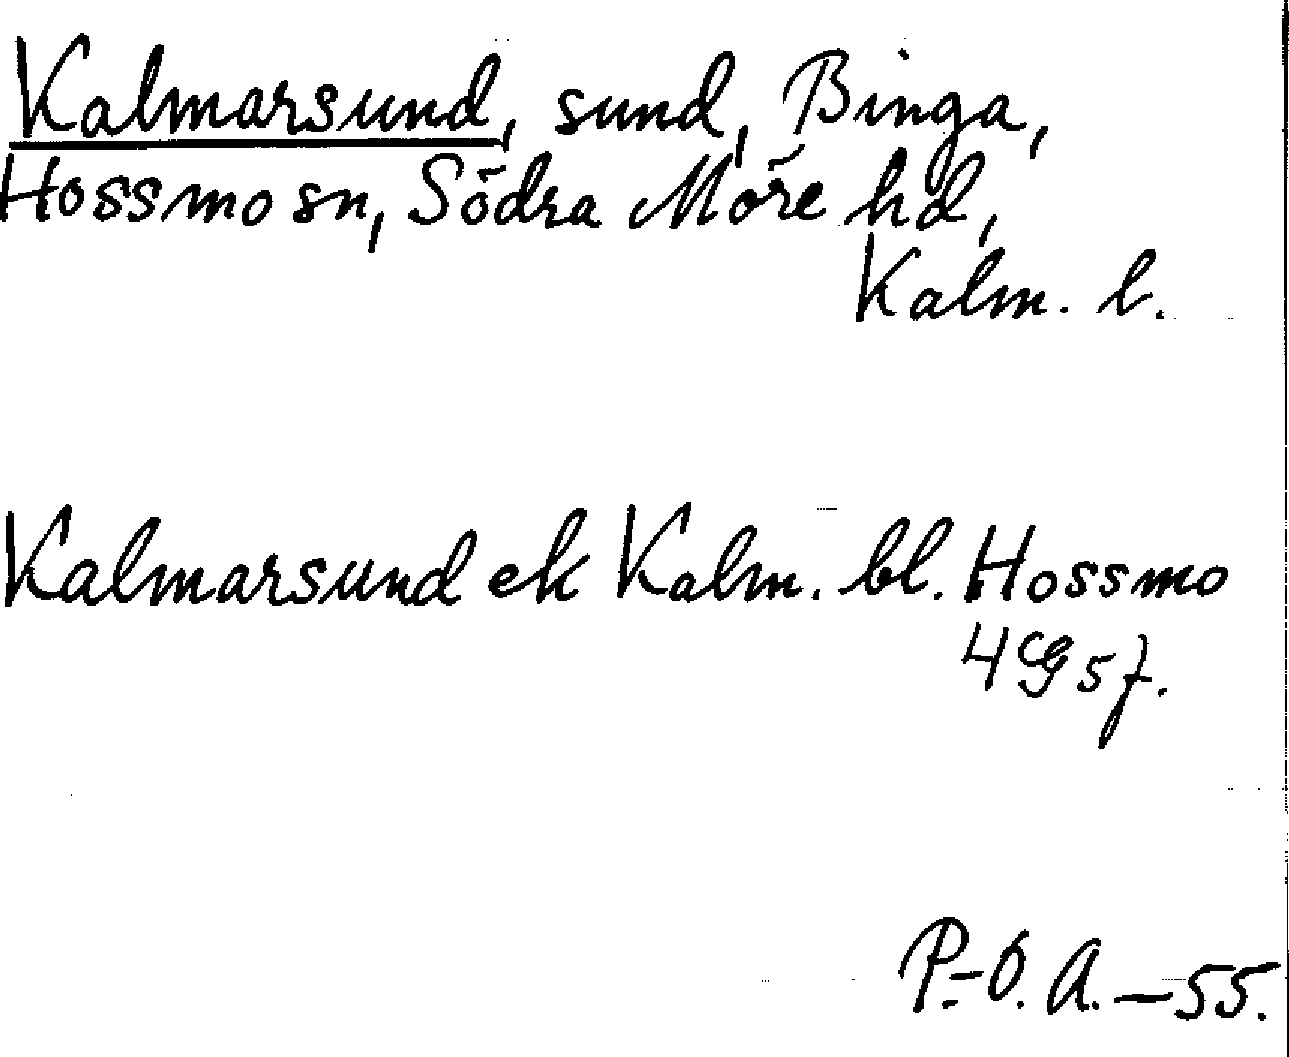 Kalmarsund, sund, Binga,
Hossmo sn, Södra Möre hd,
Kalm. l.
Kalmarsund ek Kalm. bl. Hossmo
4G5f.
P.-O. A. — 55.